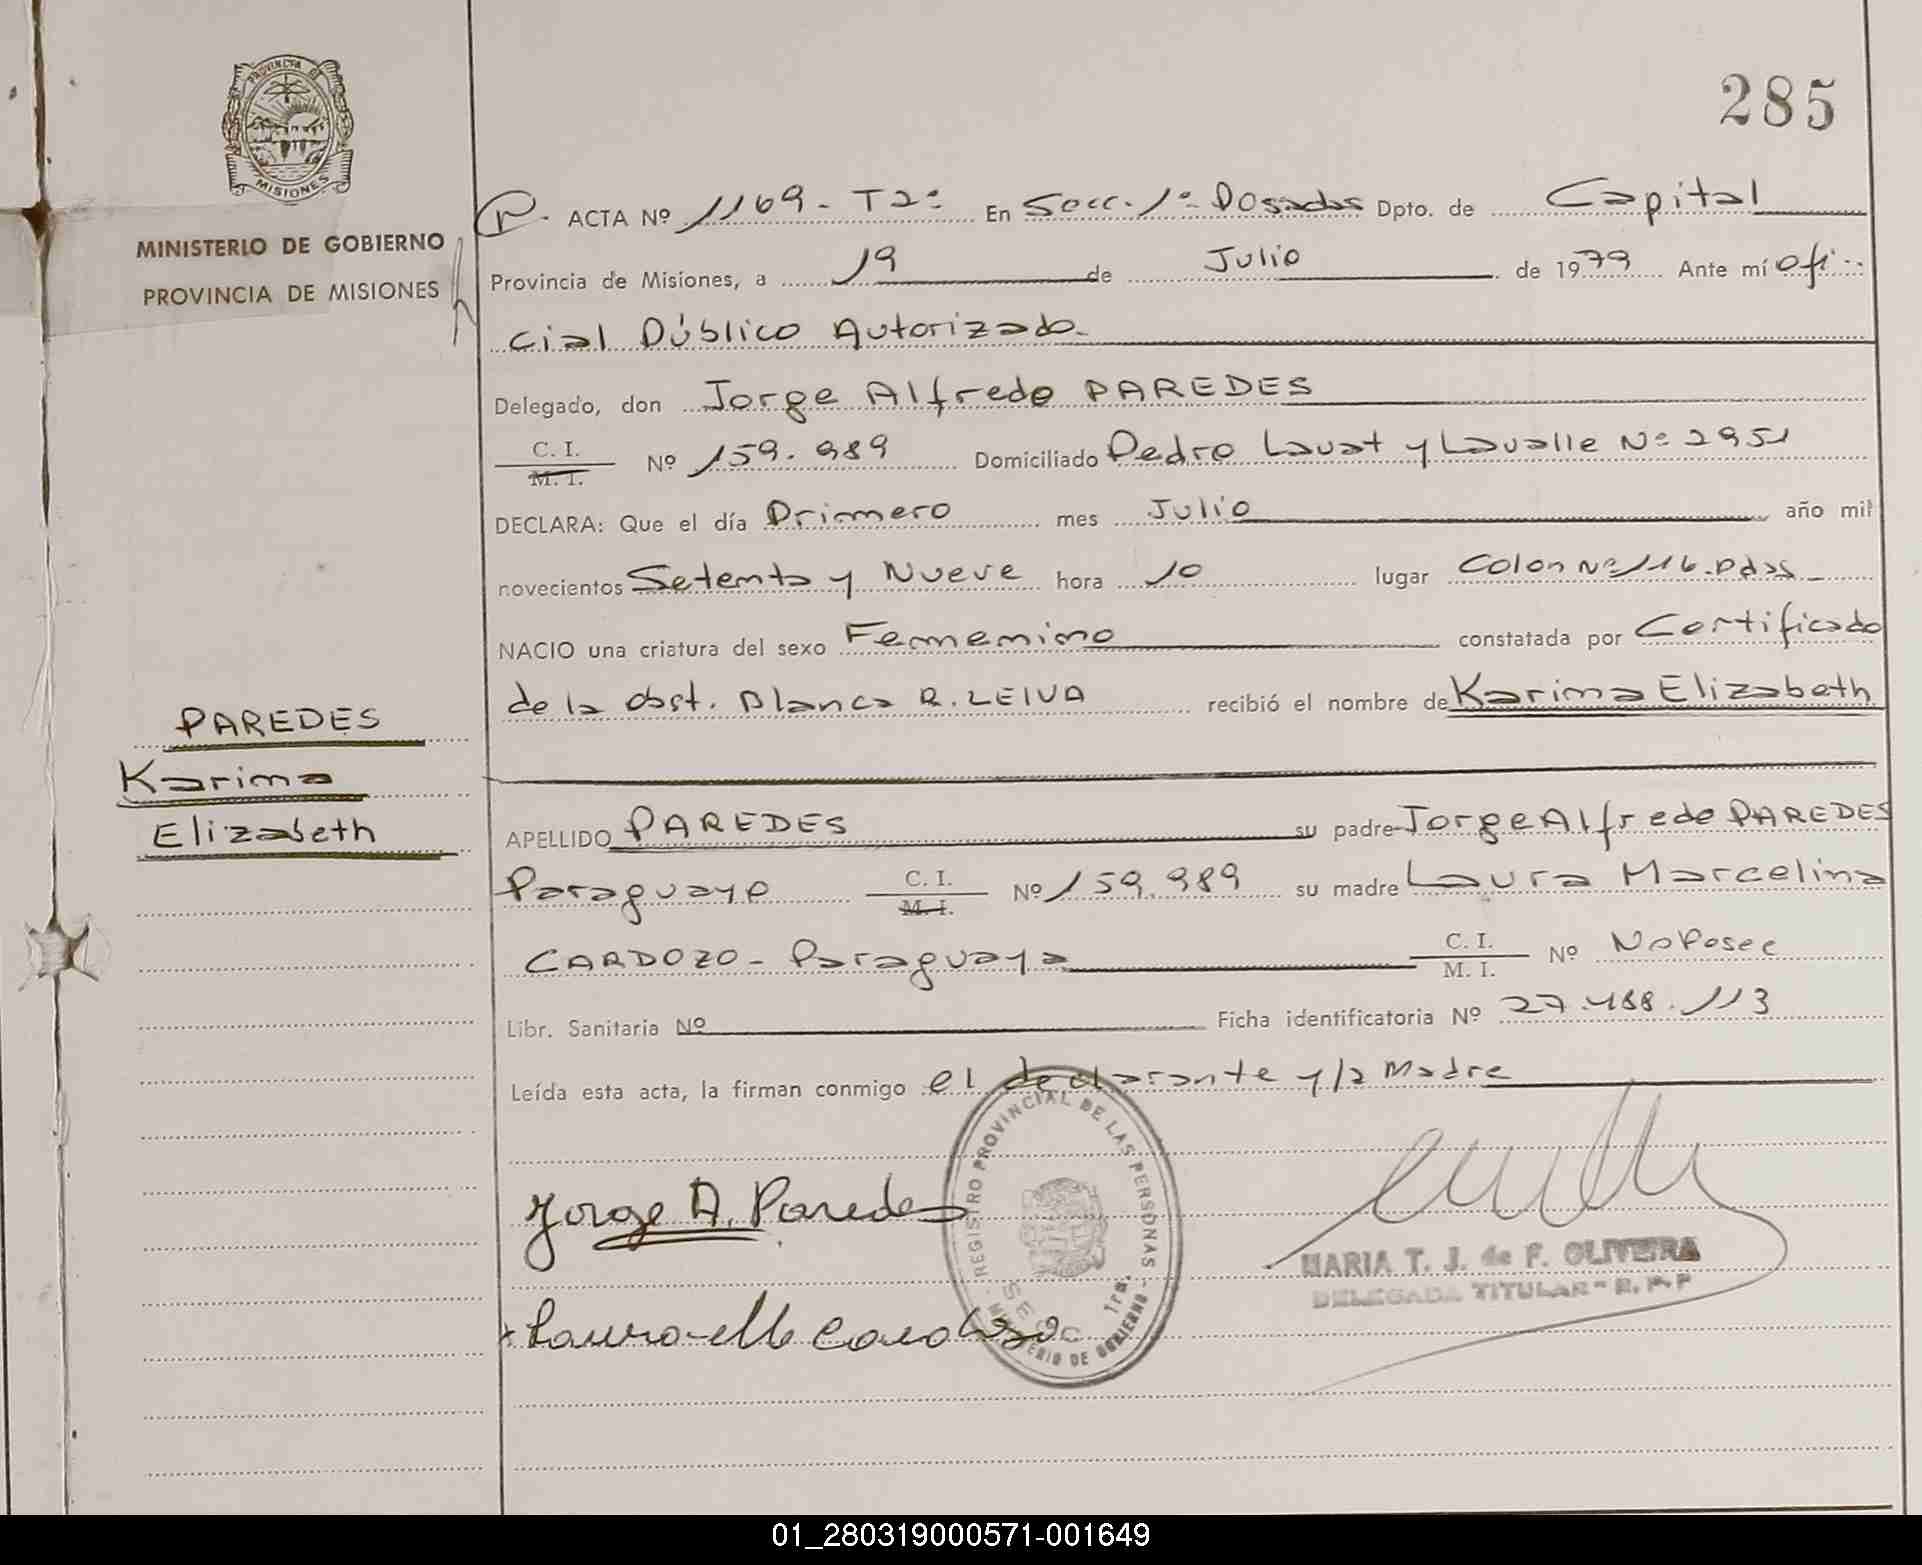 285
PROVINCIA DE
MISIONES
MINISTERIO DE GOBIERNO
PROVINCIA DE MISIONES
ACTA Nº 1169 - T2º En Secc. 1º Posadas Dpto. de Capital
Provincia de Misiones, a 19 de Julio de 1979 Ante mí Ofi-
cial Público Autorizado-
Delegado, don Jorge Alfredo PAREDES
C. I.
M. I. Nº 159.989 Domiciliado Pedro Lavat y Lavalle Nº 2951
DECLARA: Que el día Primero mes Julio año mil
novecientos Setenta y Nueve hora 10 lugar Colon Nº 116. Pdas
NACIO una criatura del sexo Femenino constatada por Certificado
de la Obst. Blanca R. LEIVA recibió el nombre de Karina Elizabeth
PAREDES
Karina
Elizabeth
APELLIDO PAREDES su padre Jorge Alfredo PAREDES
Paraguayo C. I.
M. I. Nº 159.989 su madre Laura Marcelina
CARDOZO - Paraguaya C. I.
M. I. Nº No Posee
Libr. Sanitaria Nº Ficha identificatoria Nº 27.488.113
Leída esta acta, la firman conmigo el declarante y la Madre
Jorge A. Paredes
REGISTRO PROVINCIAL DE LAS PERSONAS
SECC. 1ra.
MINISTERIO DE GOBIERNO
MARIA T. J. de F. OLIVEIRA
DELEGADA TITULAR - R. P. P
01_280319000571-001649